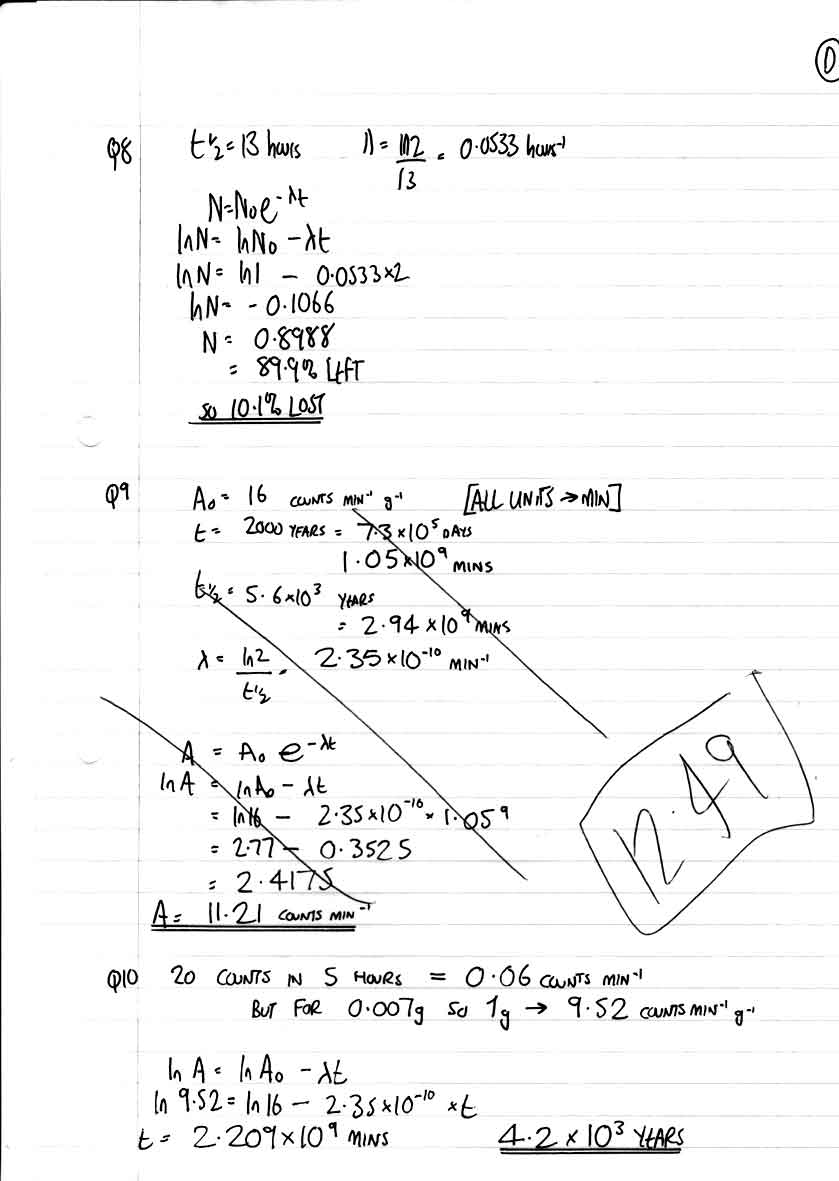 ①
Q8 t½ = 13 hours λ = ln2/13 = 0.0533 hours⁻¹
N = N₀e^-λt
lnN = lnN₀ - λt
lnN = ln1 - 0.0533×2
lnN = -0.1066
N = 0.8988
= 89.9% LEFT
so 10.1% LOST
Q9 A₀ = 16 COUNTS MIN⁻¹ g⁻¹ [ALL UNITS → MIN]
t = 2000 YEARS = 7.3×10⁵ DAYS
1.05×10⁹ MINS
t½ = 5.6×10³ YEARS
= 2.94×10⁹ MINS
λ = ln2/t½ = 2.35×10⁻¹⁰ MIN⁻¹
A = A₀ e^-λt
lnA = lnA₀ - λt
= ln16 - 2.35×10⁻¹⁰ × 1.05⁹
= 2.77 - 0.3525
= 2.4175
A = 11.21 COUNTS MIN⁻¹
12.49
Q10 20 COUNTS IN 5 HOURS = 0.06 COUNTS MIN⁻¹
BUT FOR 0.007g so 1g → 9.52 COUNTS MIN⁻¹ g⁻¹
ln A = ln A₀ - λt
ln 9.52 = ln 16 - 2.35×10⁻¹⁰ × t
t = 2.209×10⁹ MINS 4.2×10³ YEARS